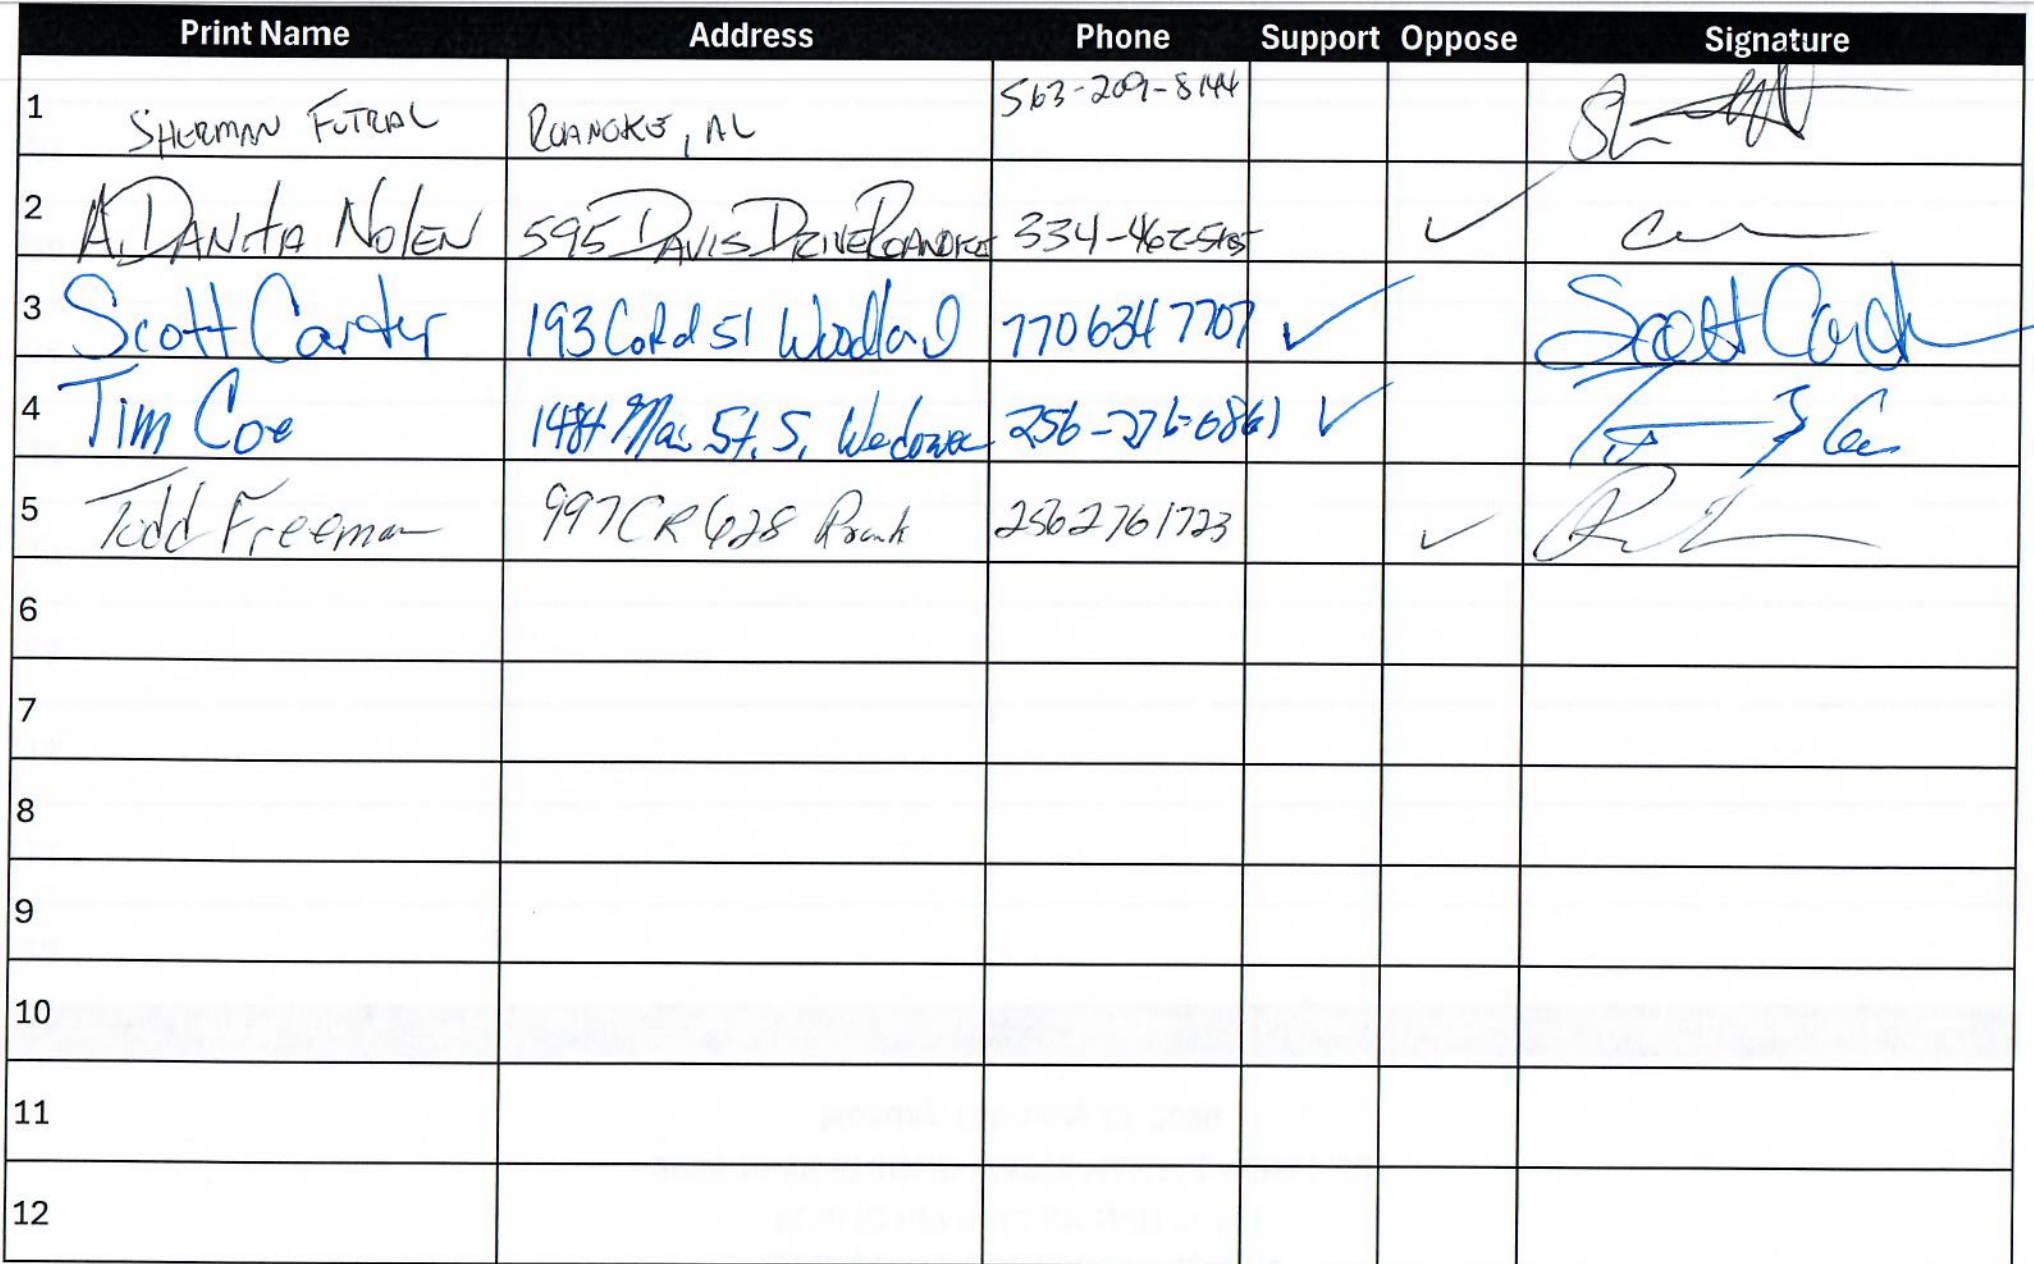 Print Name Address Phone Support Oppose Signature
1 SHERMAN FUTRAL ROANOKE, AL 563-209-8144
2 A. DANITA NOLEN 595 DAVIS DRIVE ROANOKE 334-462-
3 Scott Carter 193 Co Rd 51 Woodland 770 634 7707 ✓ Scott Carter
4 Tim Coe St. S. Wedowee 256-276-6861 ✓
5 Todd Freeman 997 CR 628 2562761723 ✓
6
7
8
9
10
11
12